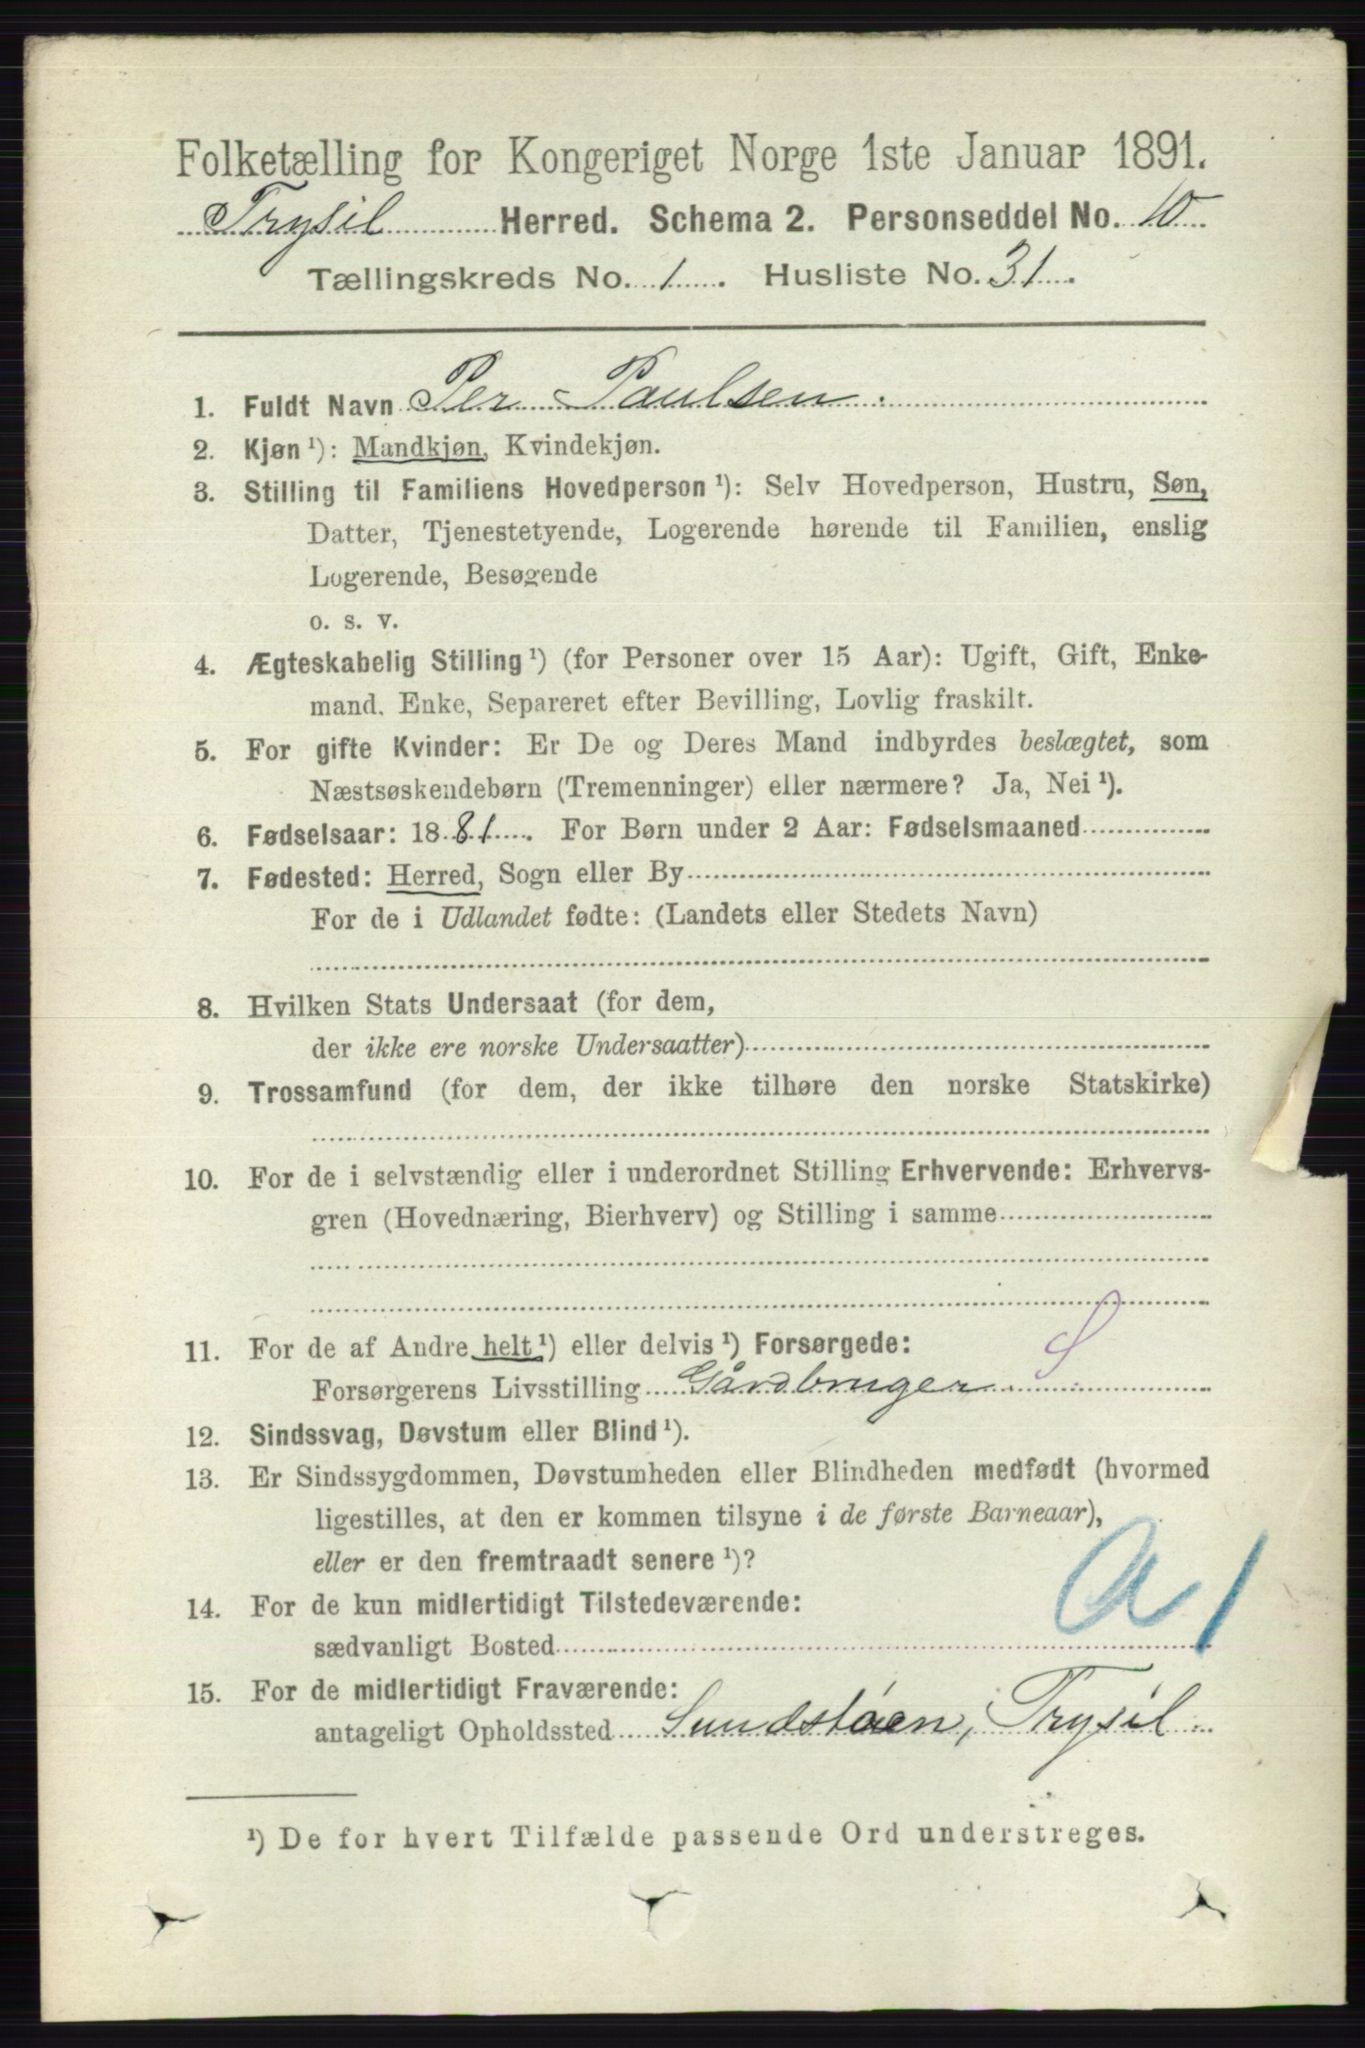 Folketælling for Kongeriget Norge 1ste Januar 1891.
Trysil Herred. Schema 2. Personseddel No. 10
Tællingskreds No. 1. Husliste No. 31.
1. Fuldt Navn Per Paulsen.
2. Kjøn ¹): Mandkjøn, Kvindekjøn.
3. Stilling til Familiens Hovedperson ¹): Selv Hovedperson, Hustru, Søn,
Datter, Tjenestetyende, Logerende hørende til Familien, enslig
Logerende, Besøgende
o. s. v.
4. Ægteskabelig Stilling ¹) (for Personer over 15 Aar): Ugift, Gift, Enke-
mand. Enke, Separeret efter Bevilling, Lovlig fraskilt.
5. For gifte Kvinder: Er De og Deres Mand indbyrdes beslægtet, som
Næstsøskendebørn (Tremenninger) eller nærmere? Ja, Nei ¹).
6. Fødselsaar: 1881. For Børn under 2 Aar: Fødselsmaaned
7. Fødested: Herred, Sogn eller By
For de i Udlandet fødte: (Landets eller Stedets Navn)
8. Hvilken Stats Undersaat (for dem,
der ikke ere norske Undersaatter)
9. Trossamfund (for dem, der ikke tilhøre den norske Statskirke)
10. For de i selvstændig eller i underordnet Stilling Erhvervende: Erhvervs-
gren (Hovednæring, Bierhverv) og Stilling i samme
11. For de af Andre helt ¹) eller delvis ¹) Forsørgede: S
Forsørgerens Livsstilling Gårdbruger.
12. Sindssvag, Døvstum eller Blind ¹).
13. Er Sindssygdommen, Døvstumheden eller Blindheden medfødt (hvormed
ligestilles, at den er kommen tilsyne i de første Barneaar),
eller er den fremtraadt senere ¹)?
a 1
14. For de kun midlertidigt Tilstedeværende:
sædvanligt Bosted
15. For de midlertidigt Fraværende:
antageligt Opholdssted Sundstöen, Trysil.
¹) De for hvert Tilfælde passende Ord understreges.